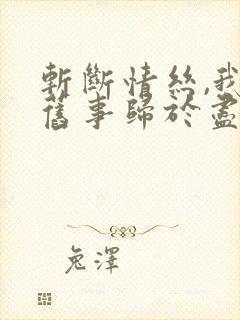 斬斷情絲,我
舊事歸於盡
兔澤